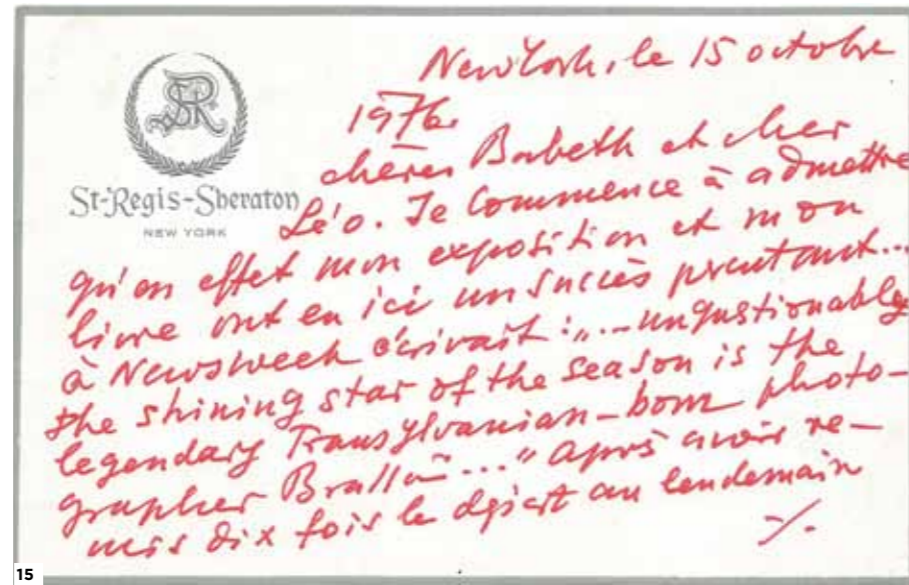 SR
St-Regis-Sheraton
NEW YORK
New York, le 15 octobre
1976
chère Babeth et cher
Léo. Je commence à admettre
qu'en effet mon exposition et mon
livre ont eu ici un succès
à Newsweek écrivait : "... unquestionably
the shining star of the season is the
legendary Transylvanian-born photo-
grapher Brassaï..." Après avoir re-
mis dix fois le départ au lendemain
./.
15